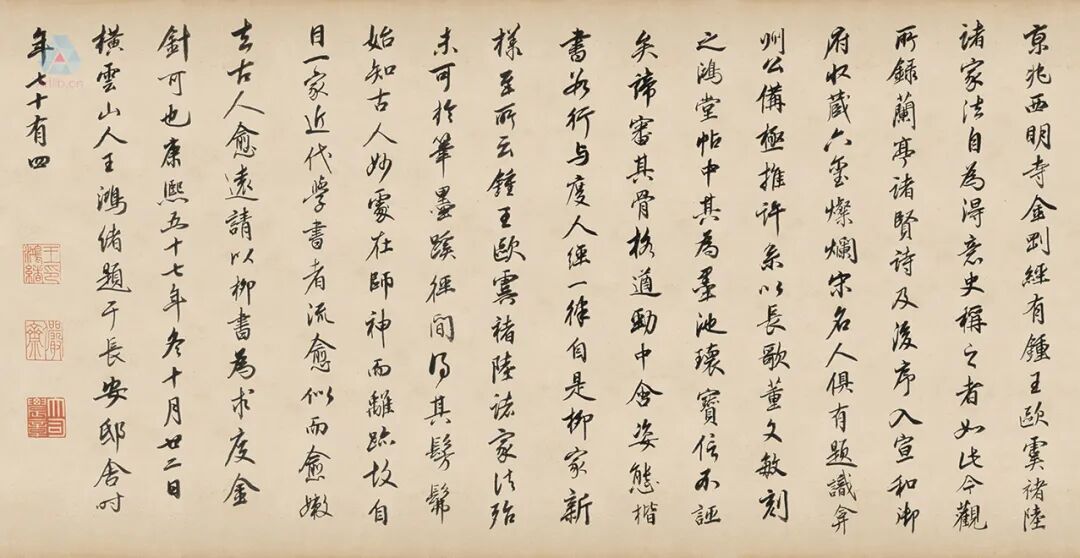 京兆西明寺金剛經有鍾王歐虞褚陸
諸家法自為得意史稱之者如此今觀
所錄蘭亭諸賢詩及後序入宣和御
府收藏六璽燦爛宋名人俱有題識弇
州公備極推許系以長歌董文敏刻
之鴻堂帖中其為墨池瓌寶信不誣
矣諦審其骨格遒勁中含姿態楷
書兼行与度人經一律自是柳家新
樣至所云鍾王歐虞褚陸諸家法殆
未可於筆墨蹊徑間得其髣髴
始知古人妙處在師神而離跡故自
目一家近代學書者流愈似而愈嫩
去古人愈遠請以柳書為求度金
針可也康熙五十七年冬十月廿二日
橫雲山人王鴻緒題于長安邸舍时
年七十有四
王印鴻緒